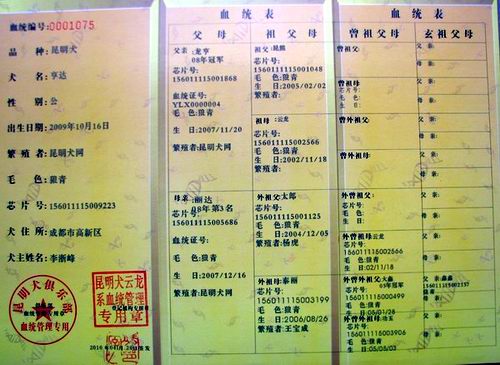 血统编号:0001075
品 种:昆明犬
犬 名:亨达
性 别:公
出生日期:2009年10月16日
繁 殖 者:昆明犬网
毛 色:狼青
芯 片 号:156011115009223
犬 住 所:成都市高新区
犬主姓名:李浙峰
昆明犬俱乐部
血统管理专用
昆明犬云龙
系血统管理
专用章
血 统 表
父 母
祖 父 母
父亲:龙亨
08年冠军
芯片号:
156011115001868
血统证号:
YLX0000004
毛 色:狼青
生 日:2007/11/20
繁殖者:昆明犬网
母亲:丽达
08年第3名
芯片号:
156011115005686
血统证号:
毛色:狼青
生 日:2007/12/16
繁殖者:昆明犬网
祖父:昆熊
芯片号:
1560111115001048
毛 色:狼青
生 日:2005/02/02
繁殖者:
祖母:云龙
芯片号:
156011115002566
毛 色:狼青
生 日:2002/11/18
繁殖者:
外祖父:太郎
芯片号:
156011115001125
毛色:狼青
生 日:2004/12/05
繁殖者:杨虎
外祖母:泰丽
芯片号:
1560111115003199
毛 色:狼青
生 日:2006/08/26
繁殖者:王宝成
血 统 表
曾 祖 父 母
玄 祖 父 母
曾祖父:
曾祖母:
芯片号:
毛色:
生 日:
曾外祖父:
曾外祖母:
外曾祖父:
芯片号:
毛色:
生 日:
外曾祖母:云龙
芯片号:
156011115002566
毛 色:狼青
生 日:02/11/18
外曾外祖父:大鑫
芯片号: 05年冠军
156011115000499
毛 色:狼青
生 日:05/01/28
芯片号:
156011115003906
毛 色:狼青
生 日:05/05/03
父亲:
母亲:
父亲:
母亲:
父亲:
母亲:
父亲:
母亲:
父亲:
母亲:
父亲:
母亲:
母亲:
父亲:
母亲: